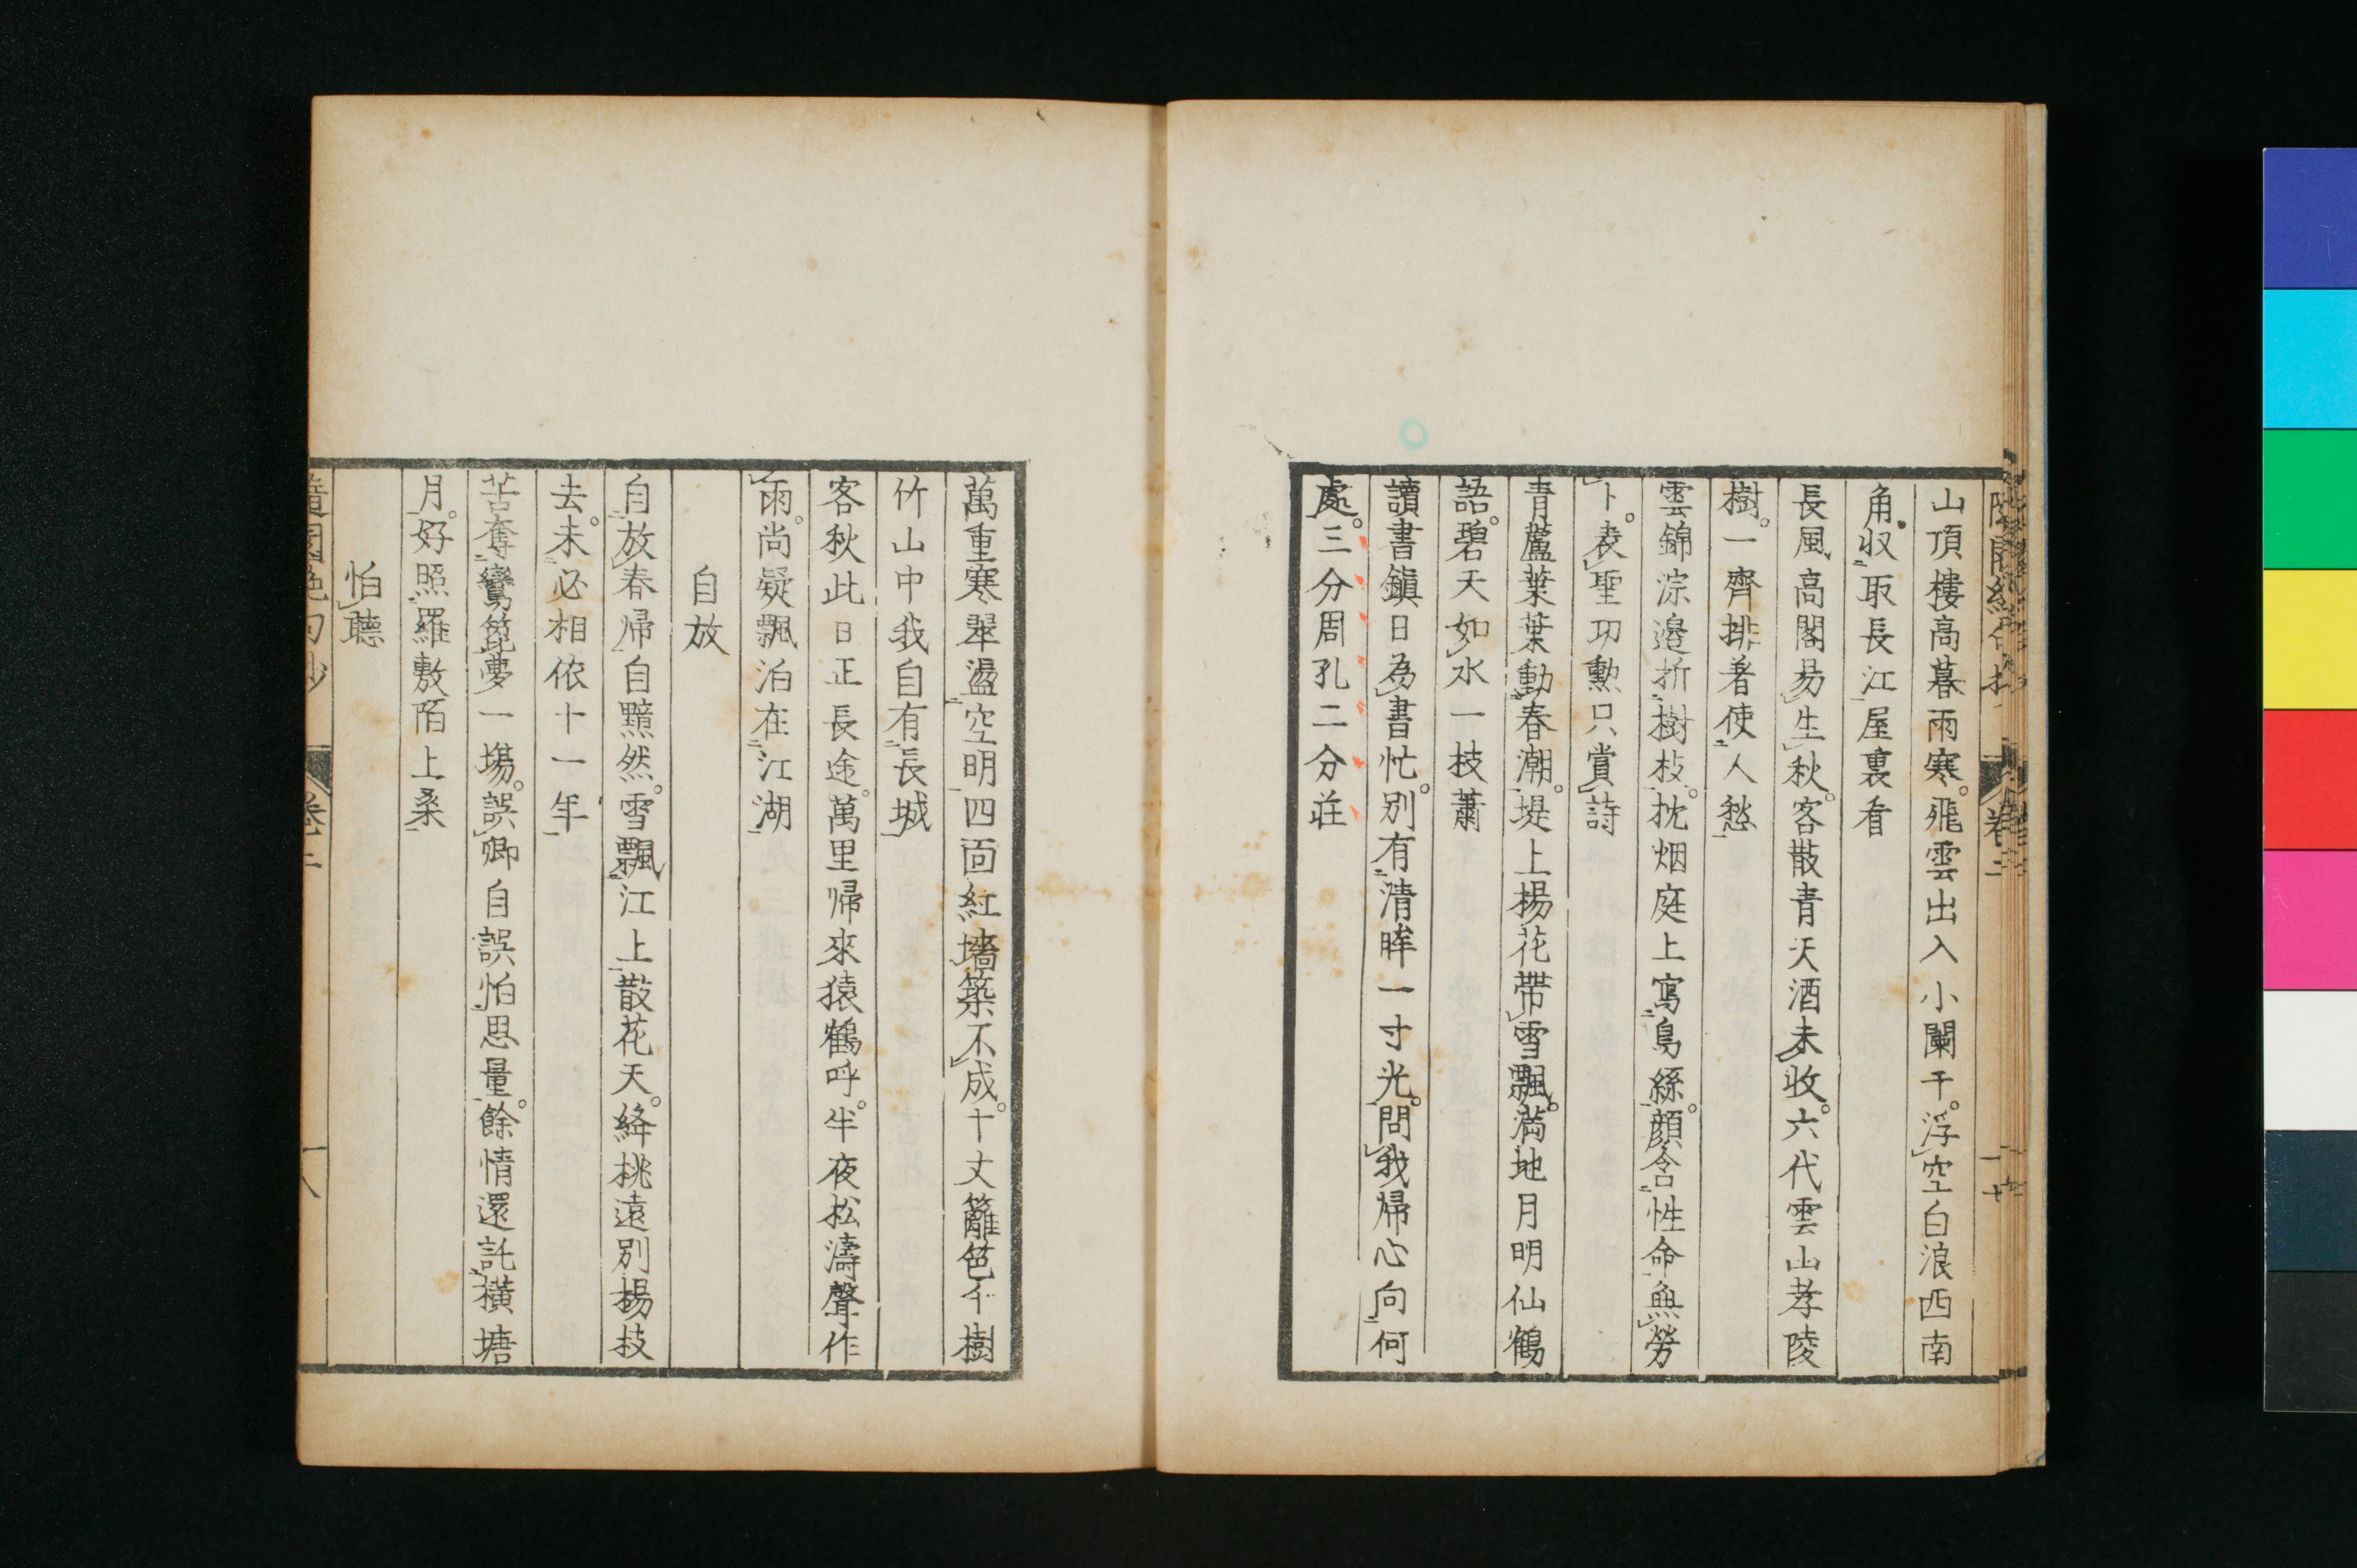 山頂樓高暮雨寒。飛雲出入小闌干。浮空白浪西南
角。収取長江屋裏看
長風高閣易生秋。客散青天酒未收。六代雲山孝陵
樹。一齊排著使人愁
雲錦淙邉折樹枝。扰烟庭上寫烏絲。顔含性命無勞
卜。表聖功勲只賞詩
青蘆葉葉動春潮。堤上楊花帶雪飄。満地月明仙鶴
語。碧天如水一枝蕭
讀書鎮日為書忙。別有清眸一寸光。問我帰心向何
處。三分周孔二分莊
萬重寒翠盪空明四面紅墻築不成。十丈籬笆千樹
竹山中我自有長城
客秋此日正長途。萬里帰來猿鶴呼。半夜松濤聲作
雨。尚疑飄泊在江湖
自放
自放春帰自黯然。雪飄江上散花天。絳桃遠別楊枝
去。未必相依十一年
苦奪鸞篦夢一場。誤卿自誤怕思量。餘情還託横塘
月。好照羅敷陌上桑
怕聽
卷二
一八